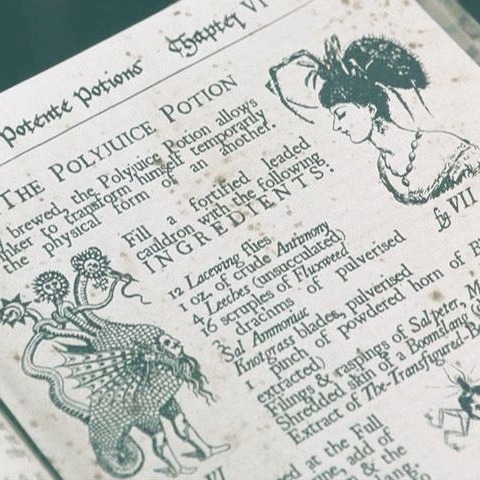 Potente Potions Chapter VI
THE POLYJUICE POTION
brewed, the Polyjuice Potion allows
to transform himself temporarily
the physical form of an another.
Fill a fortified leaded
cauldron with the following
INGREDIENTS:
12 Lacewing flies
1 oz. of crude Antimony
4 Leeches (unsucculated)
16 scruples of Fluxweed
3 drachms of pulverised
Sal Ammoniac
Knotgrass blades, pulverised
1 pinch of powdered horn of
extracted)
Filings & raspings of Salpeter,
Shredded skin of a Boomslang
Extract of The-Transfigured-
at the Full
add of
& the
fig VII
VI